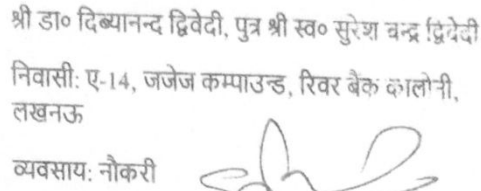 श्री डा० दिब्यानन्द द्विवेदी, पुत्र श्री स्व० सुरेश चन्द्र द्विवेदी
निवासी: ए-14, जजेज कम्पाउन्ड, रिवर बैंक कालोनी,
लखनऊ
व्यवसाय: नौकरी